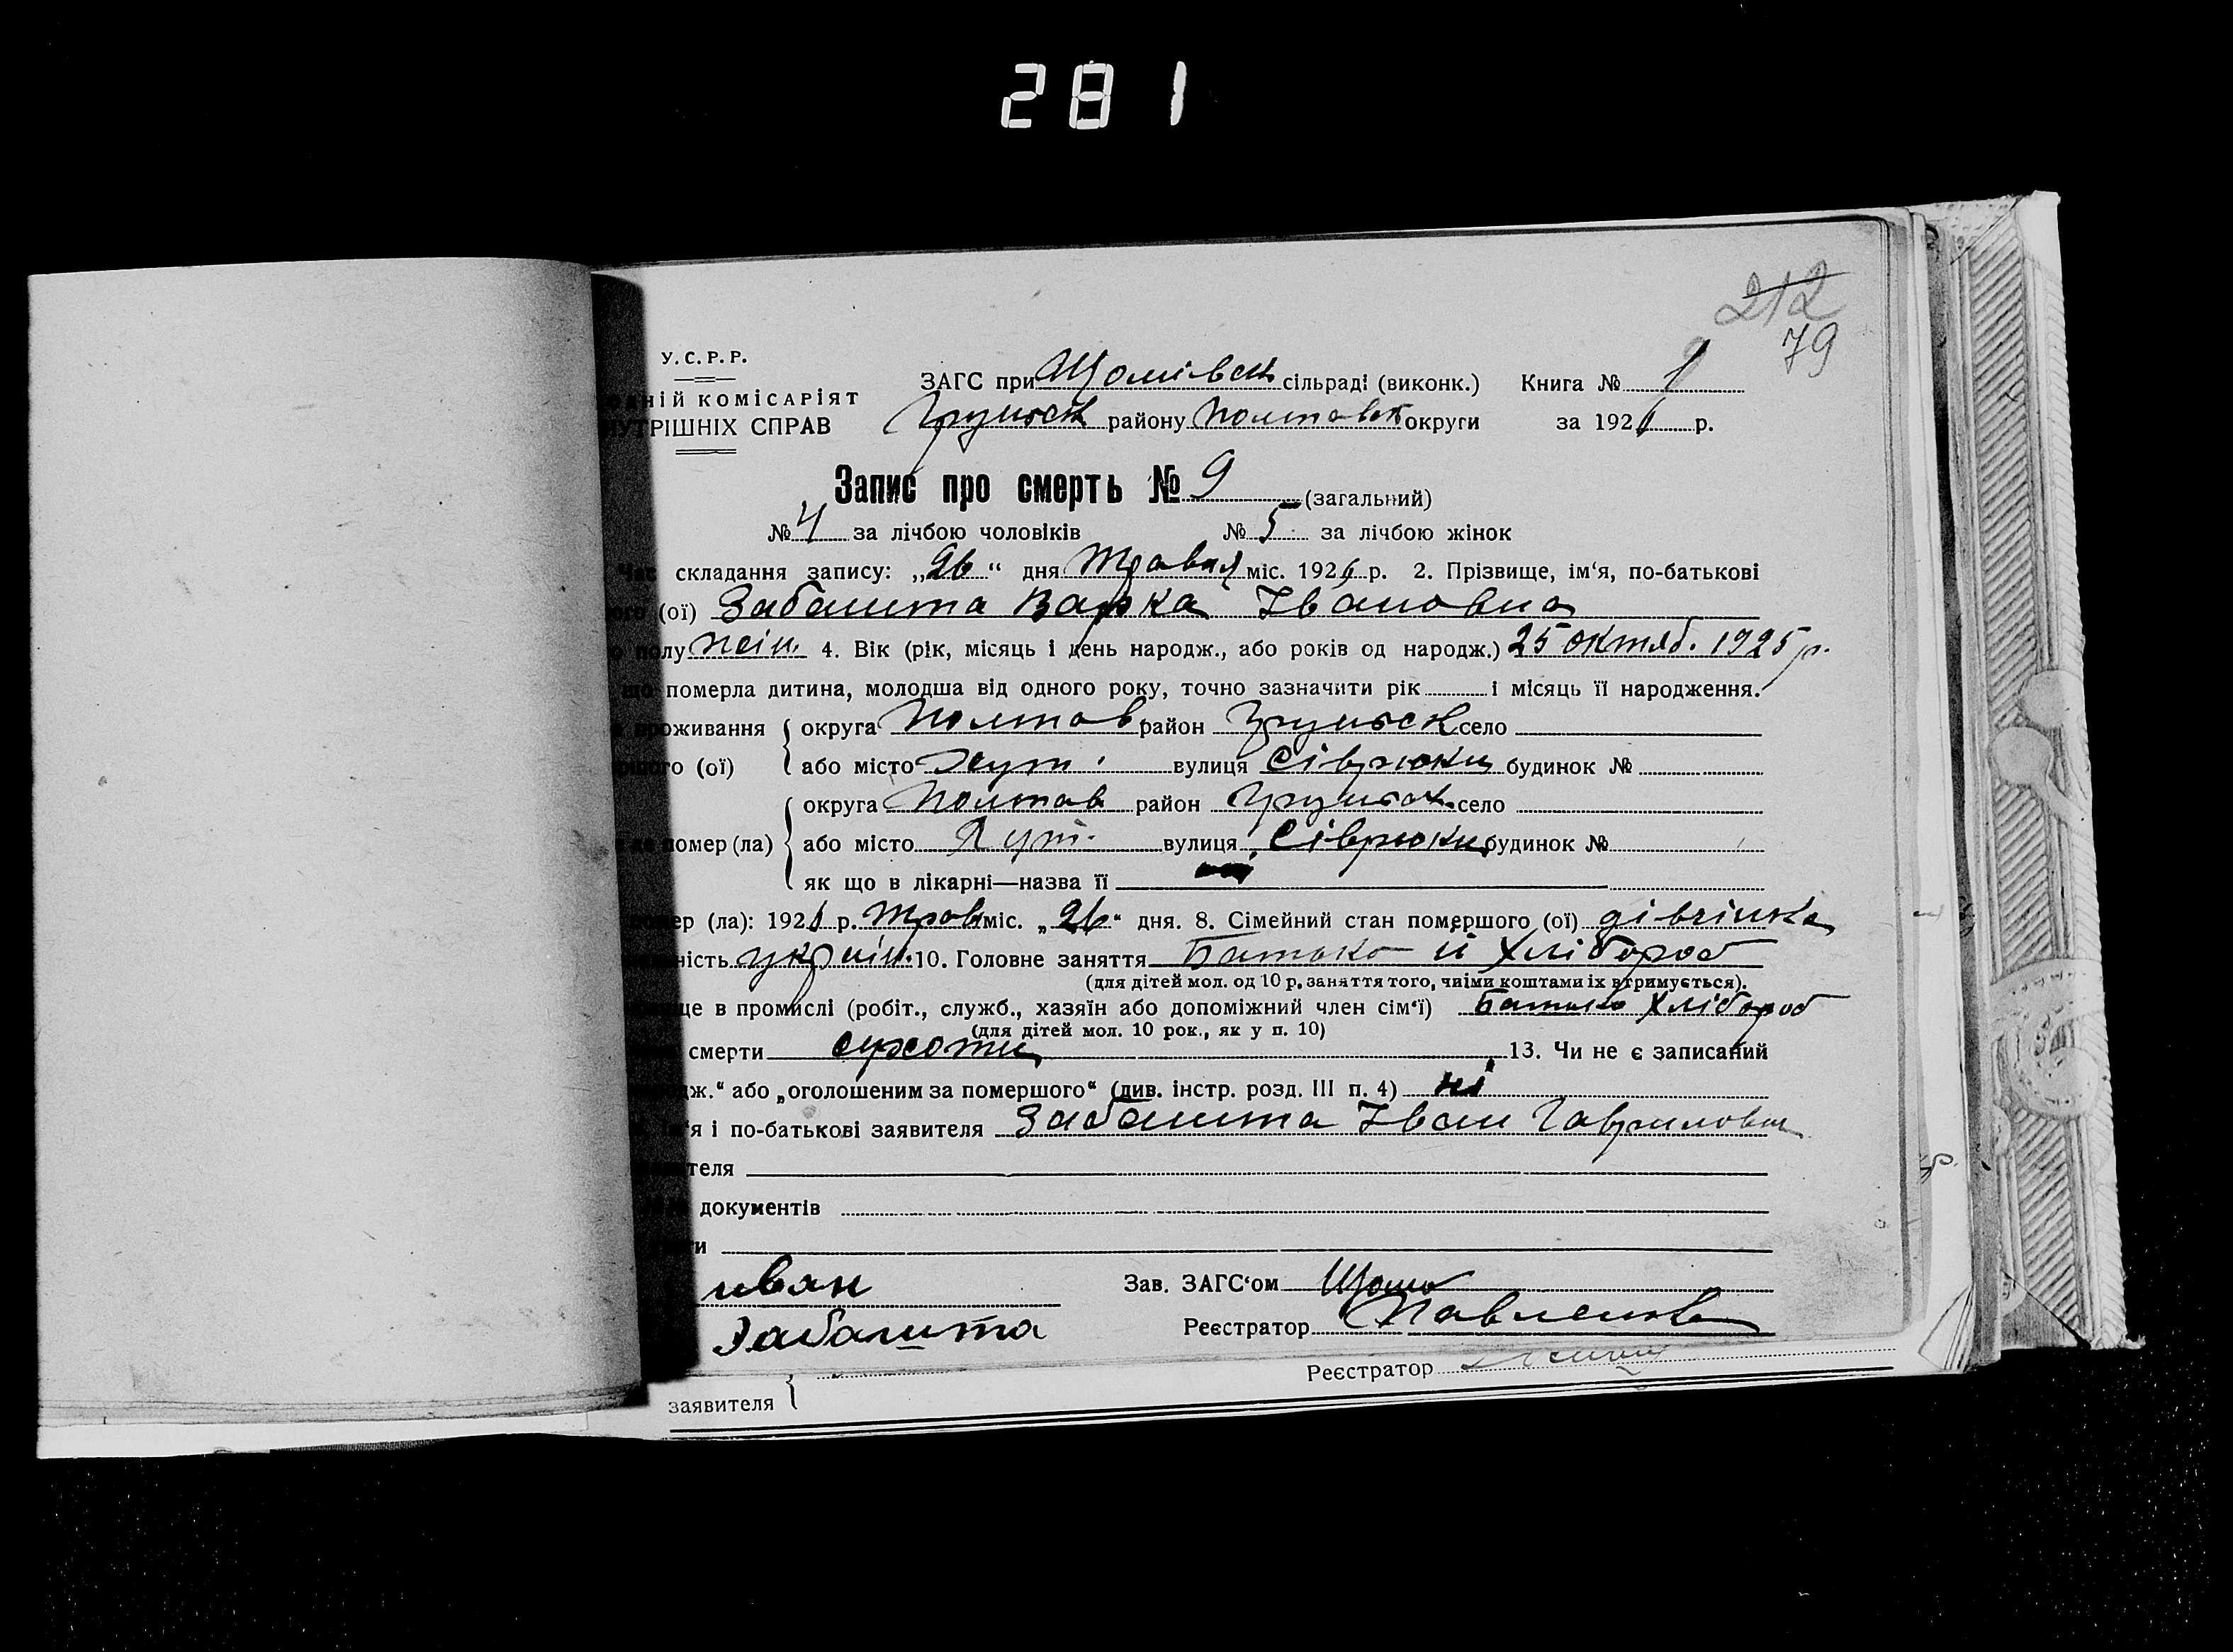 281
212
79
У.С.Р.Р.
ЗАГС при Щомівськ сільраді (виконк.) Книга № 1
НІЙ КОМІСАРІЯТ
Грунськ району Полтавськ округи за 1926 р.
ТРІШНІХ СПРАВ
Запис про смерть № 9 (загальний)
№ 4 за лічбою чоловіків № 5 за лічбою жінок
Час складання запису: „26“ дня Травня міс. 1926 р. 2. Прізвище, ім‘я, по-батькові
ого (ої) Забашта Варка Івановна
полу жін. 4. Вік (рік, місяць і день народж., або років од народж.) 25 октяб. 1925 р.
що померла дитина, молодша від одного року, точно зазначити рік і місяць її народження.
проживання округа Полтав район Грунськ село
ршого (ої) або місто Хут. вулиця Сіврюки будинок №
округа Полтав район Грунськ село
де помер (ла) або місто Хут. вулиця Сіврюки будинок №
як що в лікарні—назва її
помер (ла): 1926 р. Трав міс. „26“ дня. 8. Сімейний стан помершого (ої) дівчінка
ність україн. 10. Головне заняття Батько й Хлібороб
(для дітей мол. од 10 р. заняття того, чиїми коштами їх втримується).
ще в промислі (робіт., служб., хазяїн або допоміжний член сім‘ї) Батько Хлібороб
(для дітей мол. 10 рок., як у п. 10)
смерти сухоти 13. Чи не є записаний
дж.“ або „оголошеним за помершого“ (див. інстр. розд. III п. 4) ні
ім‘я і по-батькові заявителя Забашта Іван Гаврилович
теля
документів
ти
иван Зав. ЗАГС‘ом
Забашта Реєстратор Павленко
Реєстратор
заявителя